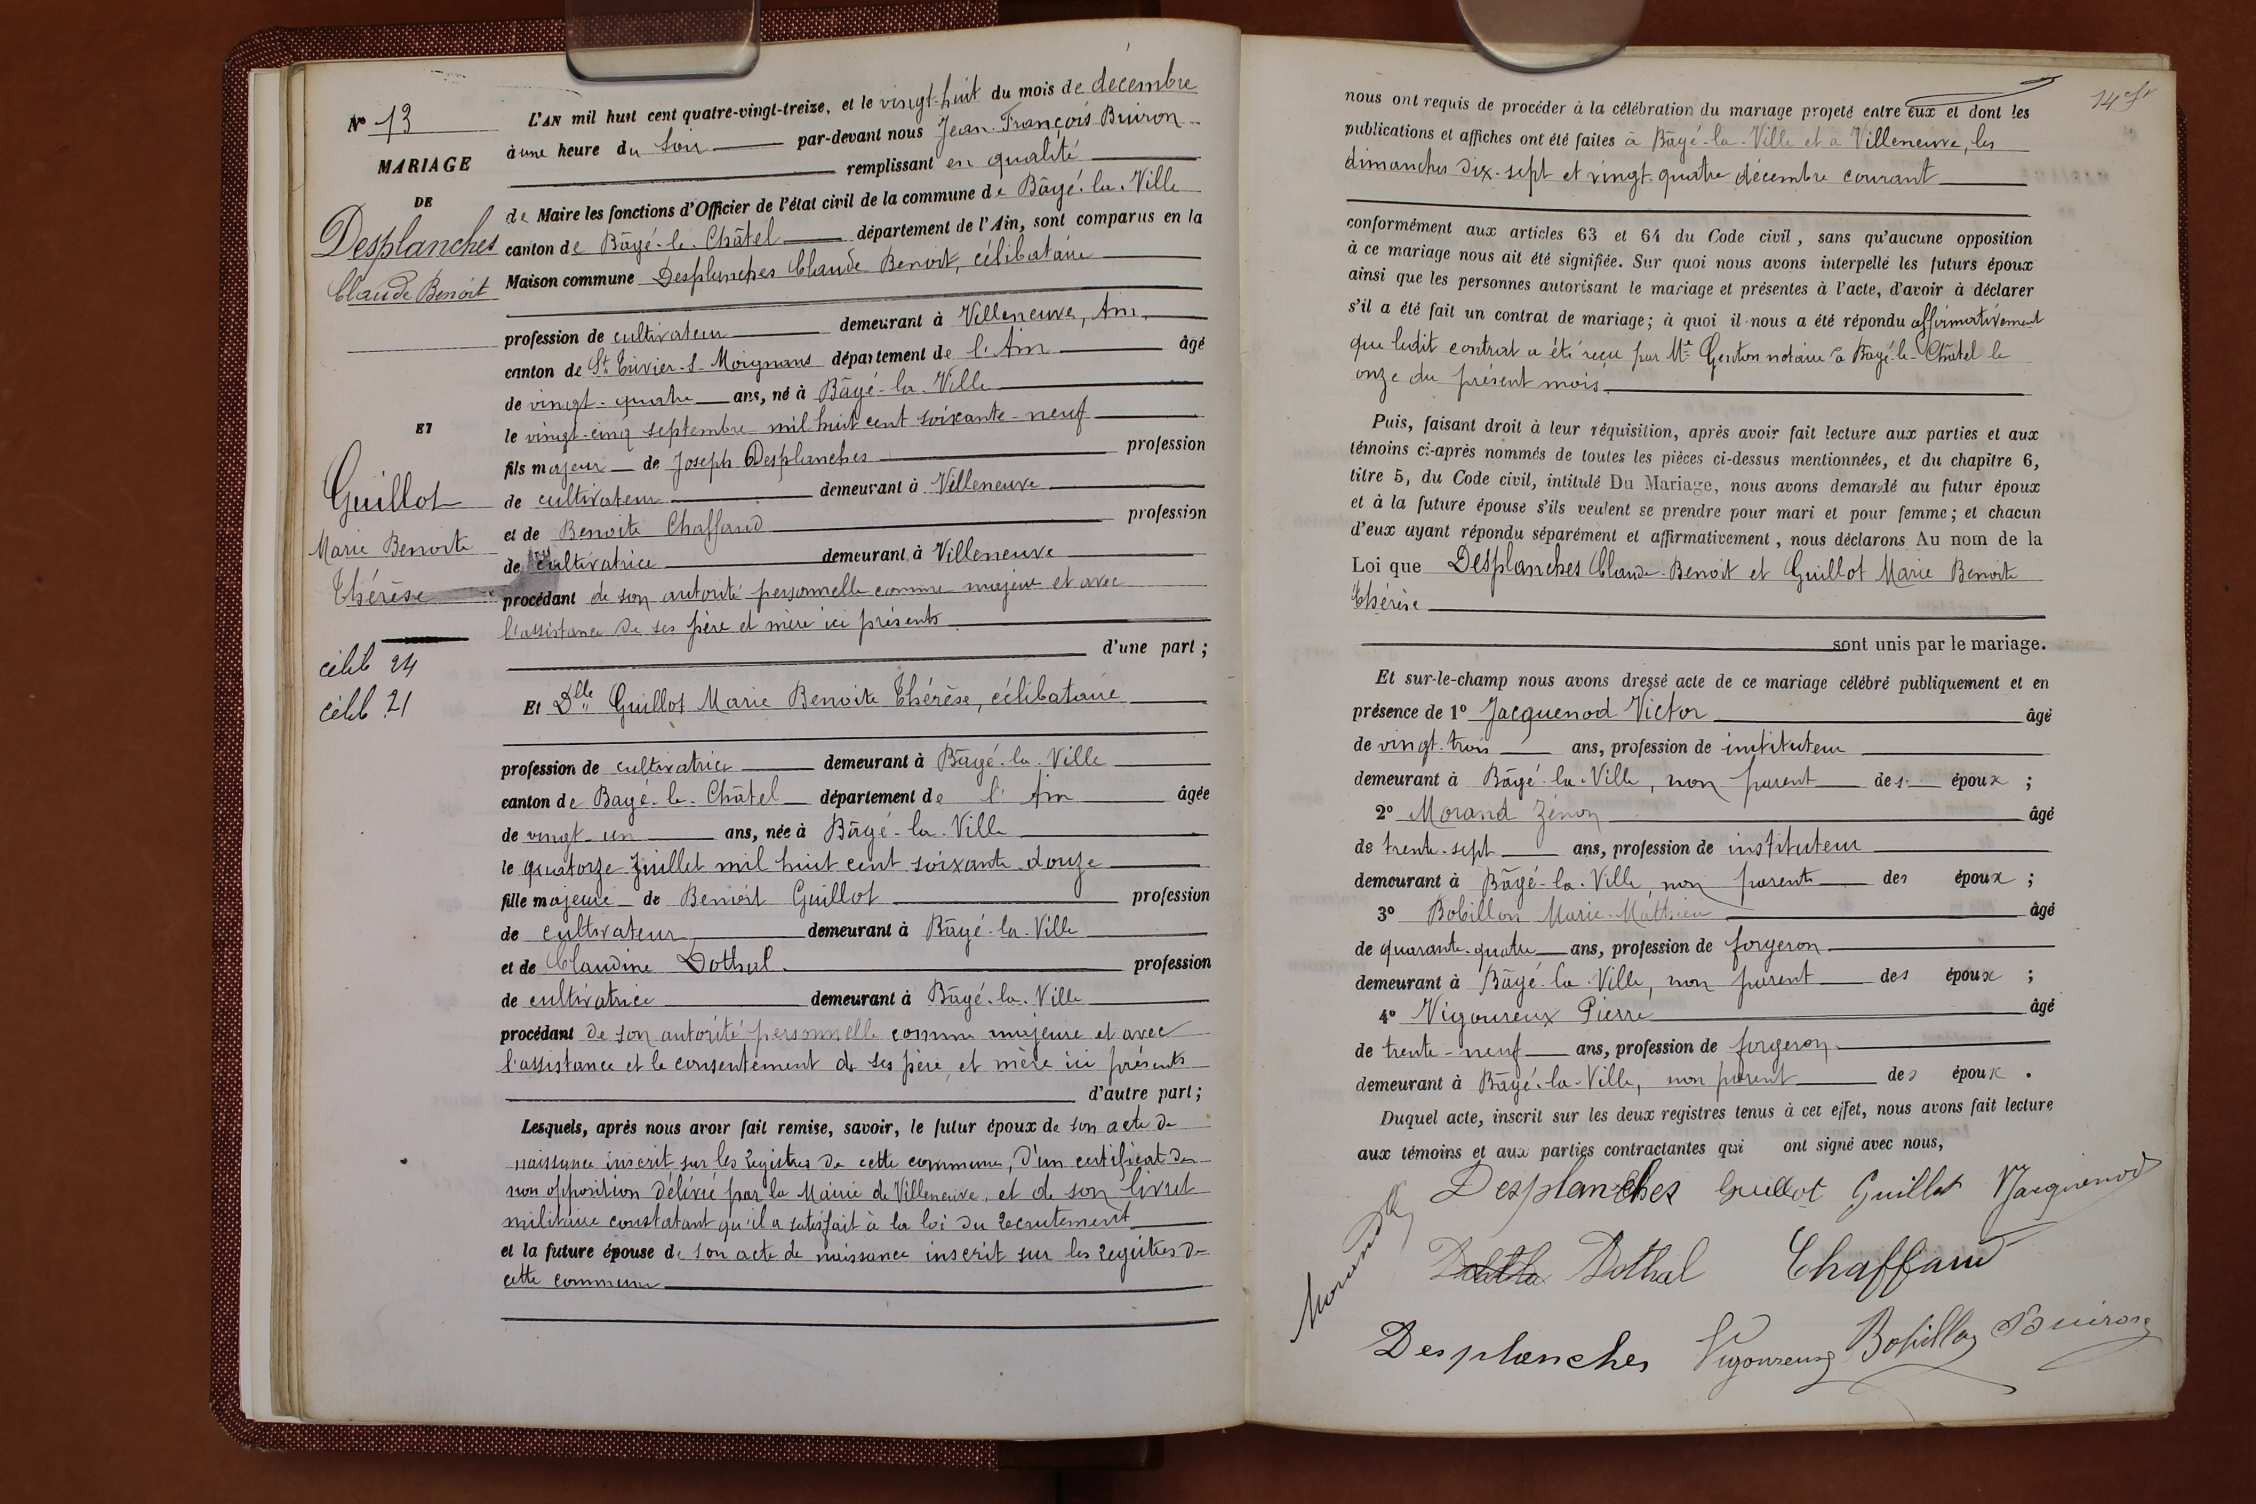 N° 13
MARIAGE
DE
Desplanches
Claude Benoît
ET
Guillot
Marie Benoite
Thérèse
célib 24
célib 21
L'AN mil huit cent quatre-vingt-treize, et le vingt-huit du mois de décembre
à une heure du soir par-devant nous Jean-François Buiron
remplissant en qualité
de Maire les fonctions d'Officier de l'état civil de la commune de Bâgé-la-Ville
canton de Bâgé-le-Châtel département de l'Ain, sont comparus en la
Maison commune Desplanches Claude Benoit, célibataire
profession de cultivateur demeurant à Villeneuve, Ain,
canton de St Trivier-s-Moignans département de l'Ain âgé
de vingt-quatre ans, né à Bâgé-la-Ville
le vingt-cinq septembre mil huit cent soixante-neuf
fils majeur de Joseph Desplanches profession
de cultivateur demeurant à Villeneuve
et de Benoite Chaffaud profession
de cultivatrice demeurant à Villeneuve
procédant de son autorité personnelle comme majeur et avec
l'assistance de ses père et mère ici présents
d'une part ;
Et Dlle Guillot Marie Benoite Thérèse, célibataire
profession de cultivatrice demeurant à Bâgé-la-Ville
canton de Bâgé-le-Châtel département de l'Ain âgée
de vingt-un ans, née à Bâgé-la-Ville
le quatorze juillet mil huit cent soixante-douze
fille majeure de Benoit Guillot profession
de cultivateur demeurant à Bâgé-la-Ville
et de Claudine Dothal profession
de cultivatrice demeurant à Bâgé-la-Ville
procédant de son autorité personnelle comme majeure et avec
l'assistance et le consentement de ses père et mère ici présents
d'autre part ;
Lesquels, après nous avoir fait remise, savoir, le futur époux de son acte de
naissance inscrit sur les registres de cette commune, d'un certificat de
non opposition délivré par la Mairie de Villeneuve, et de son livret
militaire constatant qu'il a satisfait à la loi du recrutement
et la future épouse de son acte de naissance inscrit sur les registres de
cette commune
nous ont requis de procéder à la célébration du mariage projeté entre eux et dont les
publications et affiches ont été faites à Bâgé-la-Ville et à Villeneuve, les
dimanches dix-sept et vingt-quatre décembre courant
conformément aux articles 63 et 64 du Code civil, sans qu'aucune opposition
à ce mariage nous ait été signifiée. Sur quoi nous avons interpellé les futurs époux
ainsi que les personnes autorisant le mariage et présentes à l'acte, d'avoir à déclarer
s'il a été fait un contrat de mariage ; à quoi il nous a été répondu affirmativement
que ledit contrat a été reçu par Me Genton notaire à Bâgé-le-Châtel le
onze du présent mois.
Puis, faisant droit à leur réquisition, après avoir fait lecture aux parties et aux
témoins ci-après nommés de toutes les pièces ci-dessus mentionnées, et du chapitre 6,
titre 5, du Code civil, intitulé Du Mariage, nous avons demandé au futur époux
et à la future épouse s'ils veulent se prendre pour mari et pour femme ; et chacun
d'eux ayant répondu séparément et affirmativement, nous déclarons Au nom de la
Loi que Desplanches Claude-Benoit et Guillot Marie Benoite
Thérèse
sont unis par le mariage.
Et sur-le-champ nous avons dressé acte de ce mariage célébré publiquement et en
présence de 1° Jacquenod Victor âgé
de vingt-trois ans, profession de instituteur
demeurant à Bâgé-la-Ville, non parent des époux ;
2° Morand Zénon âgé
de trente-sept ans, profession de instituteur
demeurant à Bâgé-la-Ville, non parent des époux ;
3° Bobillon Marie-Mathieu âgé
de quarante-quatre ans, profession de forgeron
demeurant à Bâgé-la-Ville, non parent des époux ;
4° Vigoureux Pierre âgé
de trente-neuf ans, profession de forgeron
demeurant à Bâgé-la-Ville, non parent des époux .
Duquel acte, inscrit sur les deux registres tenus à cet effet, nous avons fait lecture
aux témoins et aux parties contractantes qui ont signé avec nous,
Desplanches Guillot Guillot Jacquenod
Morand
Dothal Chaffaud
Desplanches Vigoureux Bobillon Buiron